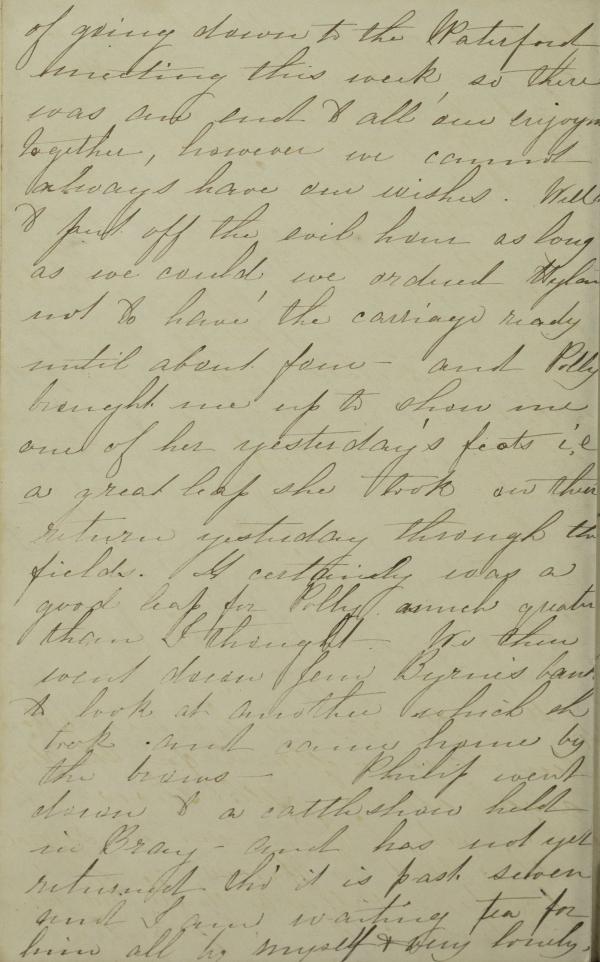 of going down to the Waterford
meeting this week, so there
was an end to all our enjoym
together, however we cannot
always have our wishes. Well
to put off the evil hour as long
as we could, we ordered
not to have the carriage ready
until about four – and Polly
brought me up to show me
one of her yesterday's feats i,e
a great leap she took on their
return yesterday through the
fields. It certainly was a
good leap for Polly. much greater
than I thought – We then
went down Jem Byrne's bank
to look at another which sh
took and came home by
the brows – Philip went
down to a cattle show held
in Bray – and has not yet
returned tho' it is past seven
and I am waiting tea for
him all by myself & very lonely,